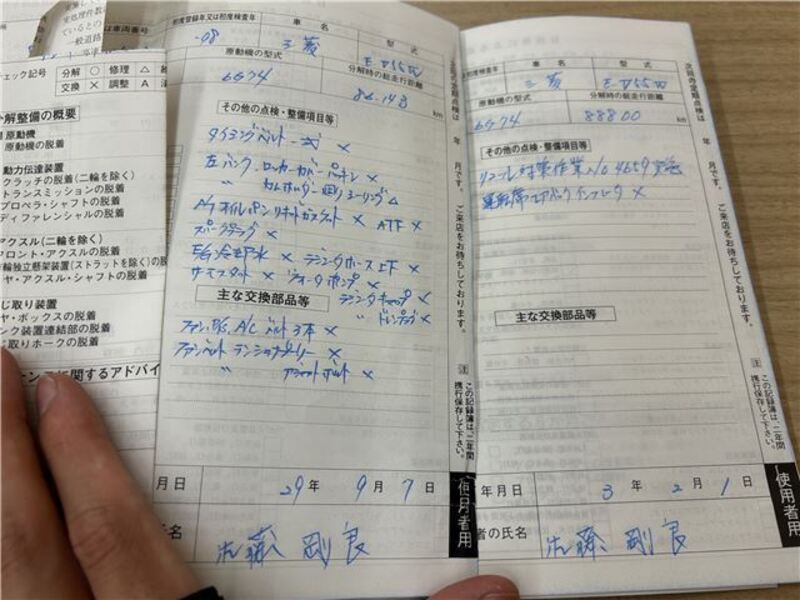 実施し
実処理件数
ているとの
一般道路
車両番号
チェック記号 分解 ○ 修理 △
交換 × 調整 A
分解整備の概要
原動機
原動機の脱着
動力伝達装置
クラッチの脱着(二輪を除く)
トランスミッションの脱着
プロペラ・シャフトの脱着
ディファレンシャルの脱着
アクスル(二輪を除く)
フロント・アクスルの脱着
輪独立懸架装置(ストラットを除く)の脱
ヤ・アクスル・シャフトの脱着
じ取り装置
ヤ・ボックスの脱着
ンク装置連結部の脱着
じ取りホークの脱着
ナンスに関するアドバイ
初度登録年又は初度検査年 車名 型式
-08 三菱 E-V55W
原動機の型式 分解時の総走行距離
6G74 86.148 km
その他の点検・整備項目等
タイミングベルト一式 ×
左バンク、ロッカーカバーパッキン ×
〃 カムホーダー廻りシーリング △
A/Tオイルパンリキッドガスケット × ATF ×
スパークプラグ ×
E/G冷却水 × ラジエータホース上下 ×
サーモスタット × ウォータポンプ ×
主な交換部品等 ラジエータキャップ ×
〃 ドレンプラグ ×
ファン、P/S、A/C ベルト3本 ×
ファンベルト テンショナプーリー ×
〃 ボルト ×
月日 29年 9月 7日
氏名 剛良
使用者用
次回の定期点検は 年 月です。ご来店をお待ちしております。
注 この記録簿は、二年間携行保存して下さい。
初度検査年 車名 型式
三菱 E-V55W
原動機の型式 分解時の総走行距離
6G74 88800 km
その他の点検・整備項目等
リコール対策作業 No 4659 実施
運転席エアバックインフレータ ×
主な交換部品等
年月日 3年 2月 1日
者の氏名 剛良
使用者用
次回の定期点検は 年 月です。ご来店をお待ちしております。
注 この記録簿は、二年間携行保存して下さい。